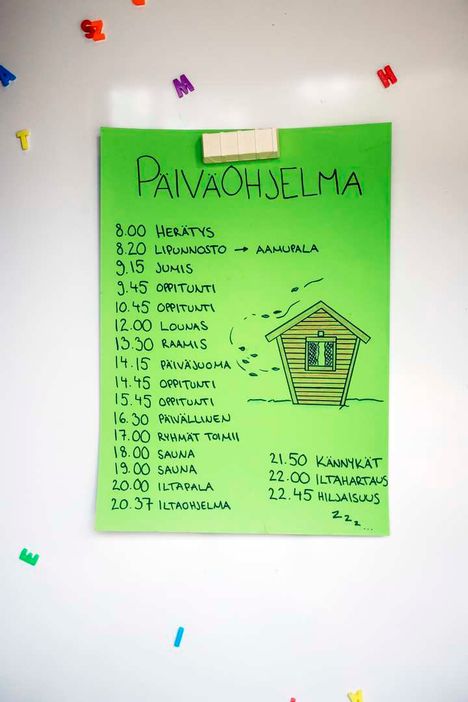 S
Z
A
M
H
T
PÄIVÄOHJELMA
8.00 HERÄTYS
8.20 LIPUNNOSTO → AAMUPALA
9.15 JUMIS
9.45 OPPITUNTI
10.45 OPPITUNTI
12.00 LOUNAS
13.30 RAAMIS
14.15 PÄIVÄJUOMA
14.45 OPPITUNTI
15.45 OPPITUNTI
16.30 PÄIVÄLLINEN
17.00 RYHMÄT TOIMII
18.00 SAUNA
19.00 SAUNA
20.00 ILTAPALA
20.37 ILTAOHJELMA
21.50 KÄNNYKÄT
22.00 ILTAHARTAUS
22.45 HILJAISUUS
zzz...
E
I